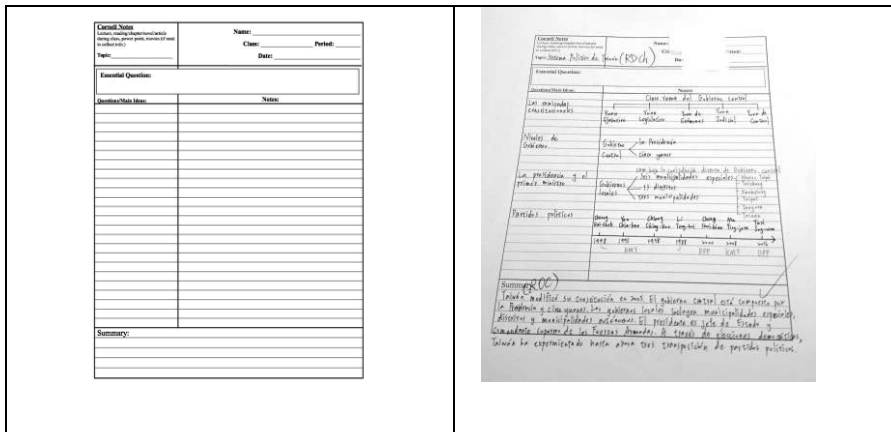 Cornell Notes
Lecture, reading/chapter/novel/article
during class, power point, movies (if need
to collect info.)
Topic:
Name:
Class: Period:
Date:
Essential Question:
Questions/Main Ideas: Notes:
Summary:
Cornell Notes
Lecture, reading/chapter/novel/article
during class, power point, movies (if need
to collect info.)
Topic: Sistema Político de (RDCh)
Name:
Essential Question:
Questions/Main Ideas: Notes:
Cinco Yuanes del Gobierno Central
Las enmiendas
constitucionales
Yuan Yuan Yuan de Yuan Yuan de
Ejecutivo Legislativo Exámenes Judicial Control
Niveles de
Gobierno
Gobierno
Central
la Presidencia
cinco yuanes
La presidencia y el
primer ministro
Gobiernos
locales
seis municipalidades especiales
13 distritos
tres municipalidades
Partidos políticos
1948 1975 1978 1988 2000 2008 2016
KMT DPP KMT DPP
Summary (ROC)
Taiwán modificó su constitución en 2005. El gobierno central está compuesto por
la Presidencia y cinco yuanes. Los gobiernos locales incluyen municipalidades especiales,
distritos y municipalidades autónomas. El presidente es jefe de Estado y
Comandante supremo de las Fuerzas Armadas. A través de elecciones democráticas,
Taiwán ha experimentado hasta ahora tres transposición de partidos políticos.